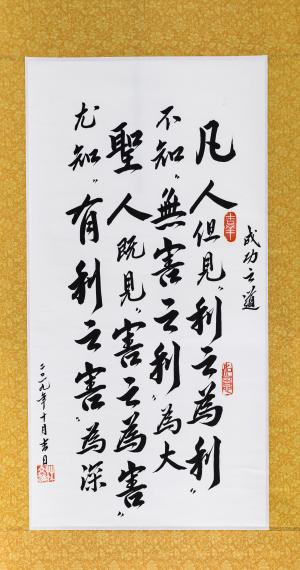 成功之道
凡人但見"利之為利"
不知"無害之利"為大
聖人既見"害之為害"
尤知"有利之害"為深
二〇一九年十月吉日